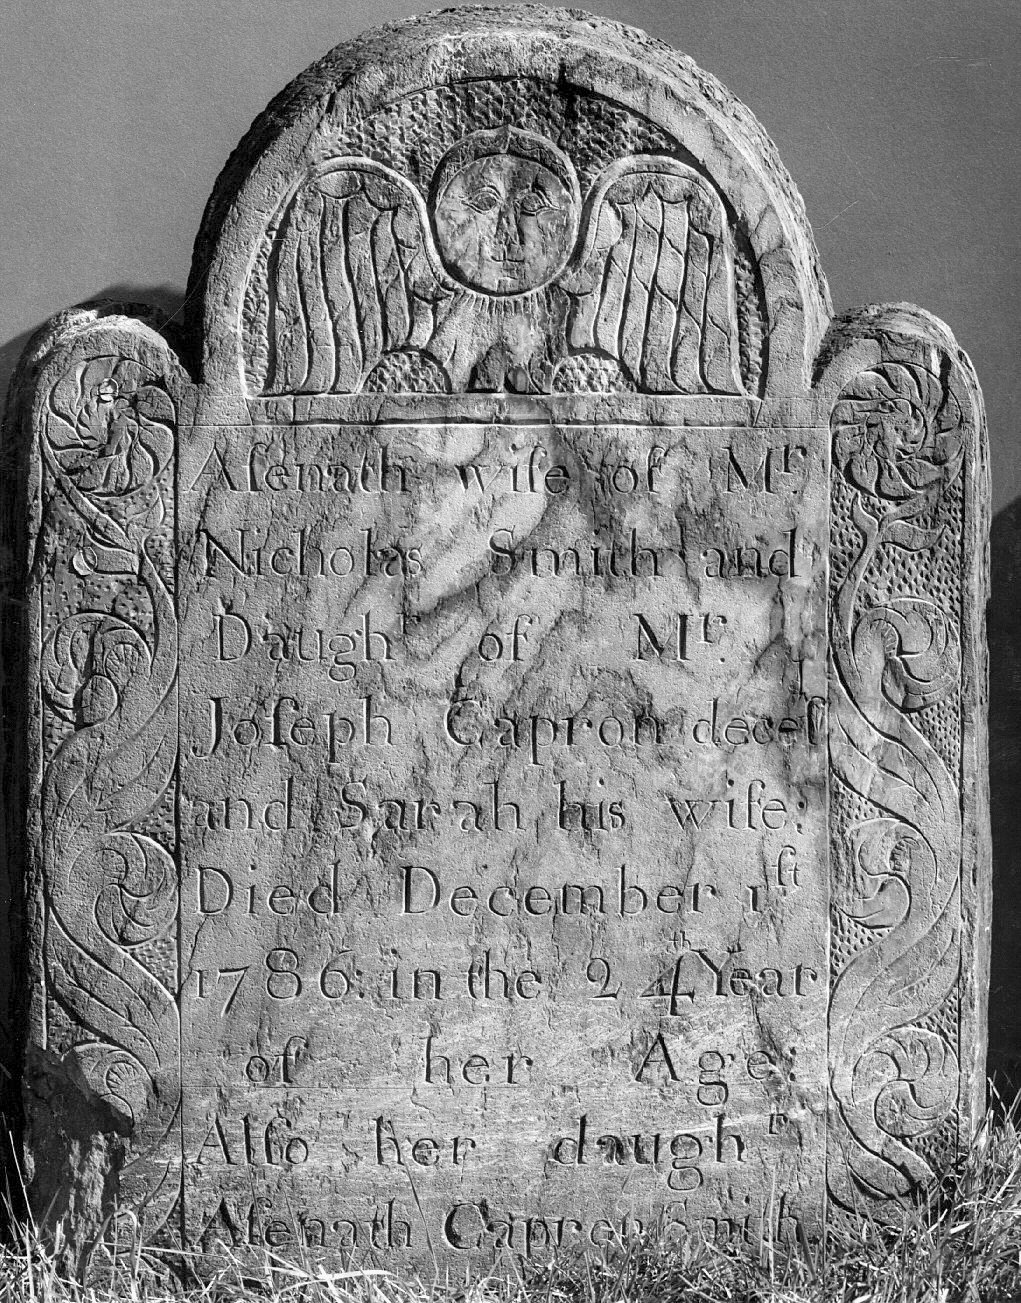 Aſenath wife of Mr.
Nicholas Smith and
Daughr of Mr.
Joſeph Capron deceſ
and Sarah his wife.
Died December 1ſt
1786. in the 24th Year
of her Age.
Alſo her daughr
Aſenath Capren Smith